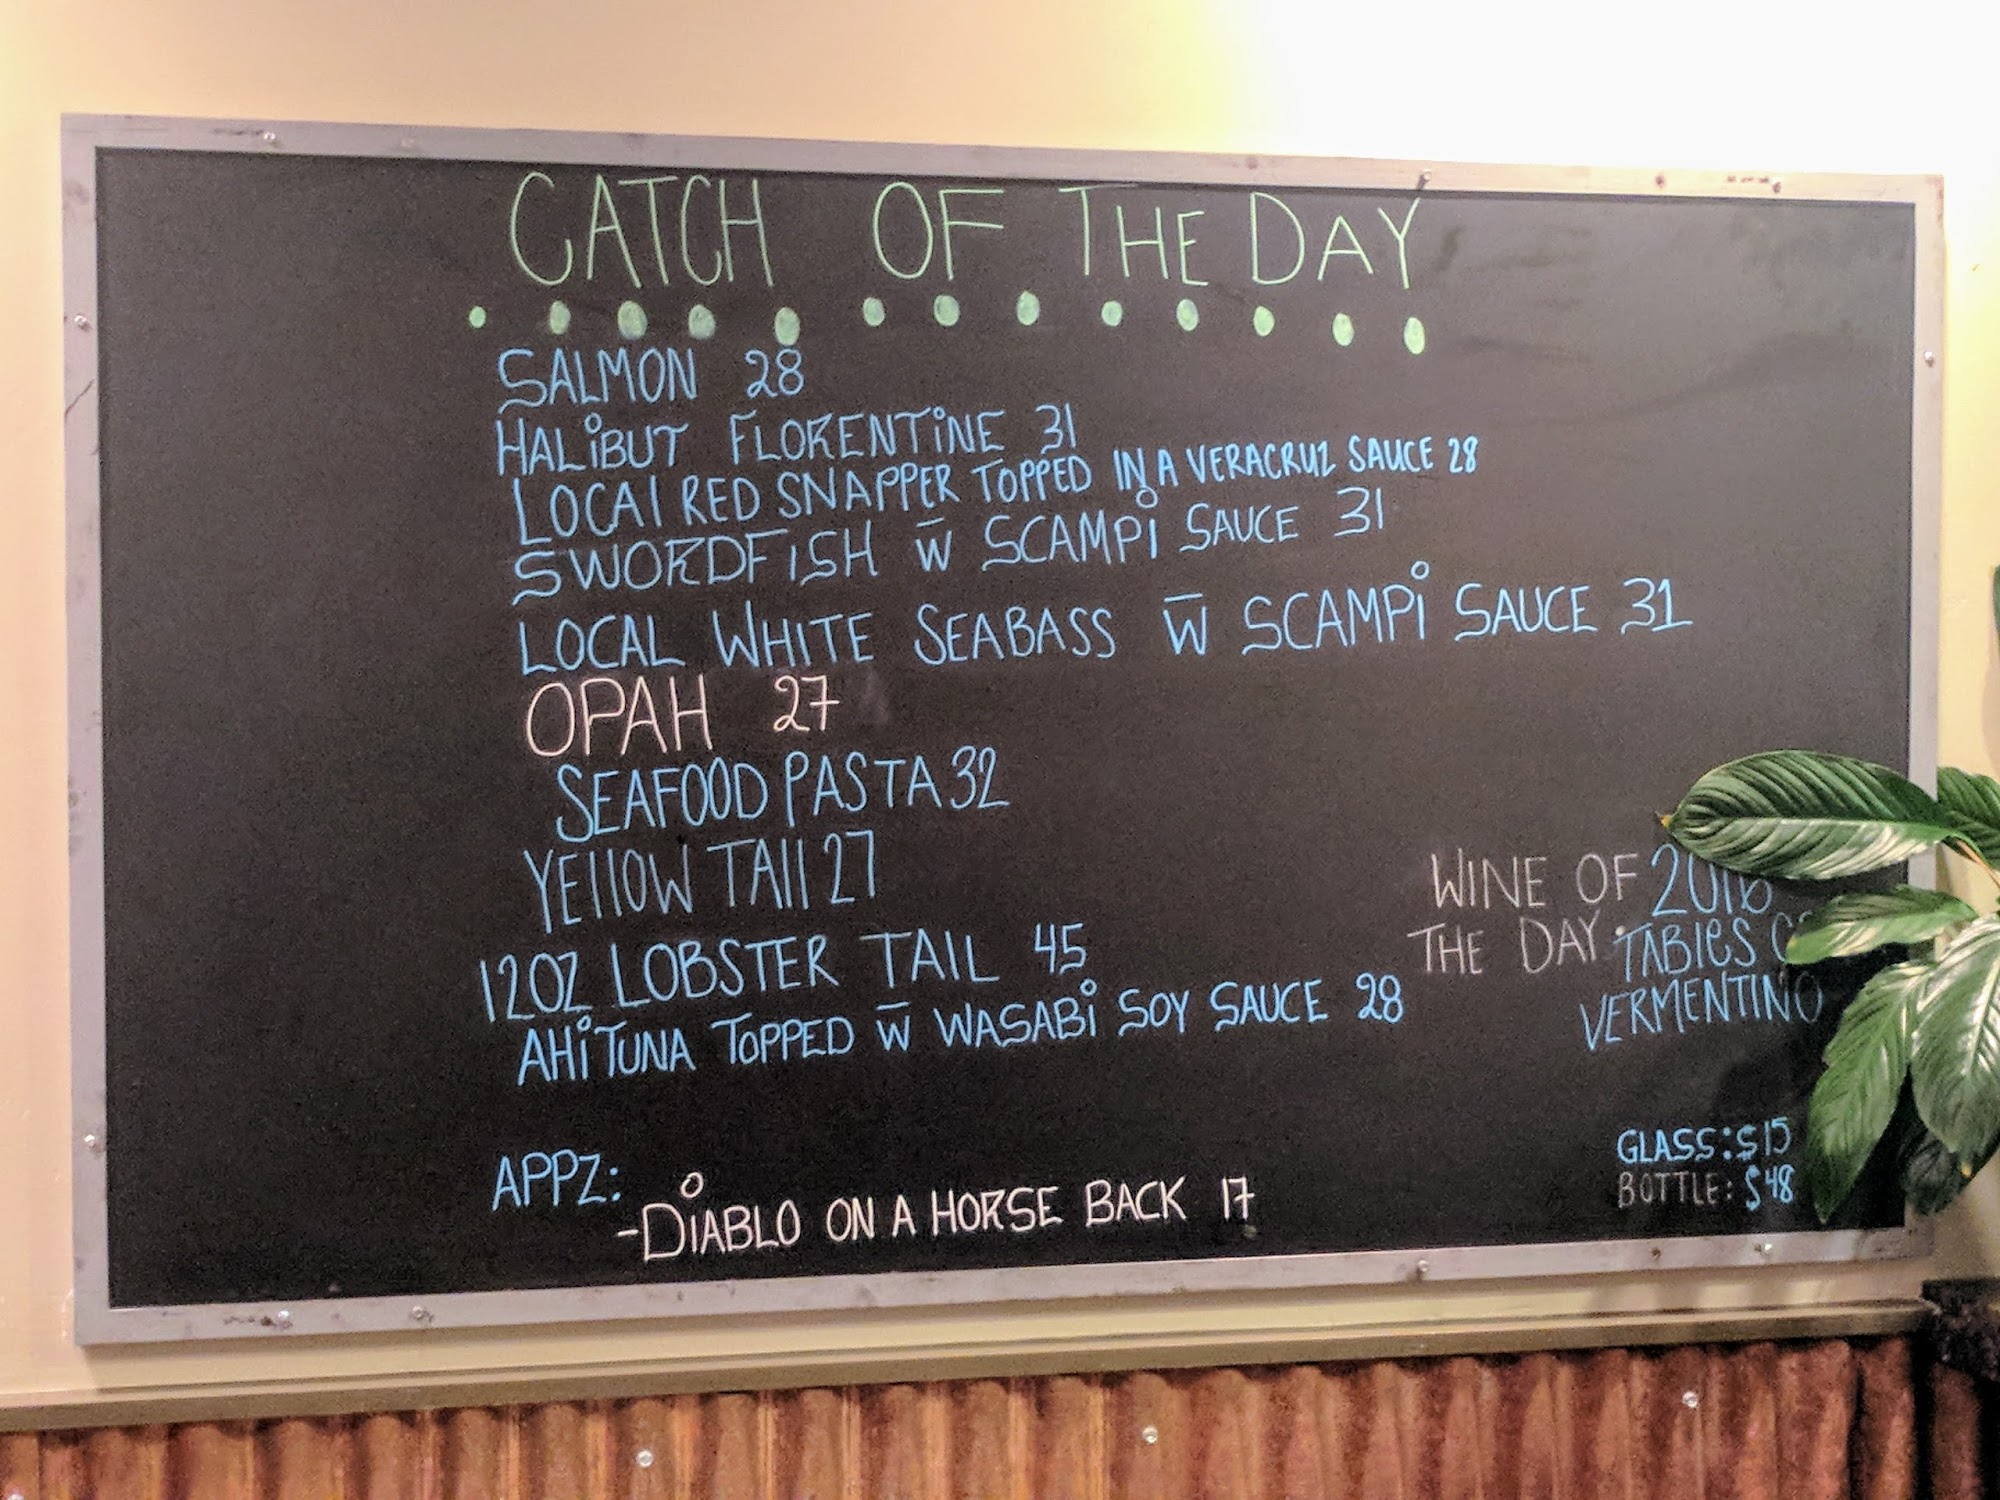 CATCH OF THE DAY
SALMON 28
HALIBUT FLORENTINE 31
LOCAL RED SNAPPER TOPPED IN A VERACRUZ SAUCE 28
SWORDFISH W̅ SCAMPI SAUCE 31
LOCAL WHITE SEABASS W̅ SCAMPI SAUCE 31
OPAH 27
SEAFOOD PASTA 32
YELLOW TAIL 27
12OZ LOBSTER TAIL 45
AHI TUNA TOPPED W̅ WASABI SOY SAUCE 28
APPZ:
-DIABLO ON A HORSE BACK 17
WINE OF 2016
THE DAY: TABLES
VERMENTINO
GLASS: $15
BOTTLE: $48